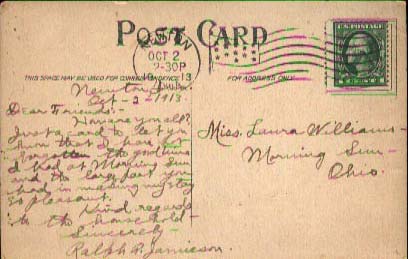 POST CARD
NEWTON
OCT 2
2-30P
1913
THIS SPACE MAY BE USED FOR CORRESPONDENCE
FOR ADDRESS ONLY.
U.S. POSTAGE
Newton,
Oct-2-1913.
Dear Friends:-
How are you all?
Just a card to let you
know that I have not
forgotten the good time
I had at Morning Sun
and the large part you
had in making my stay
so pleasant.
Kind regards
to the household-
Sincerely-
Ralph R. Jamieson.
Miss. Laura Williams-
Morning Sun-
Ohio.